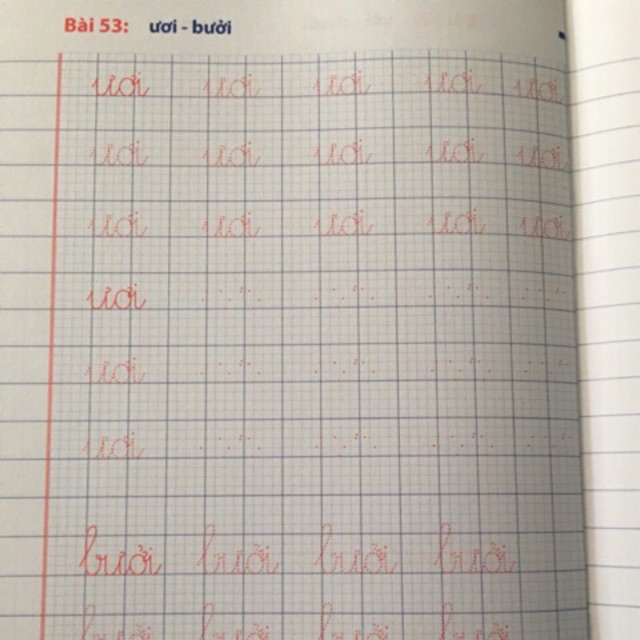 Bài 53: ươi - bưởi
ươi ươi ươi ươi ươi
ươi ươi ươi ươi ươi
ươi ươi ươi ươi ươi
ươi
ươi
ươi
bưởi bưởi bưởi bưởi
bưởi bưởi bưởi bưởi